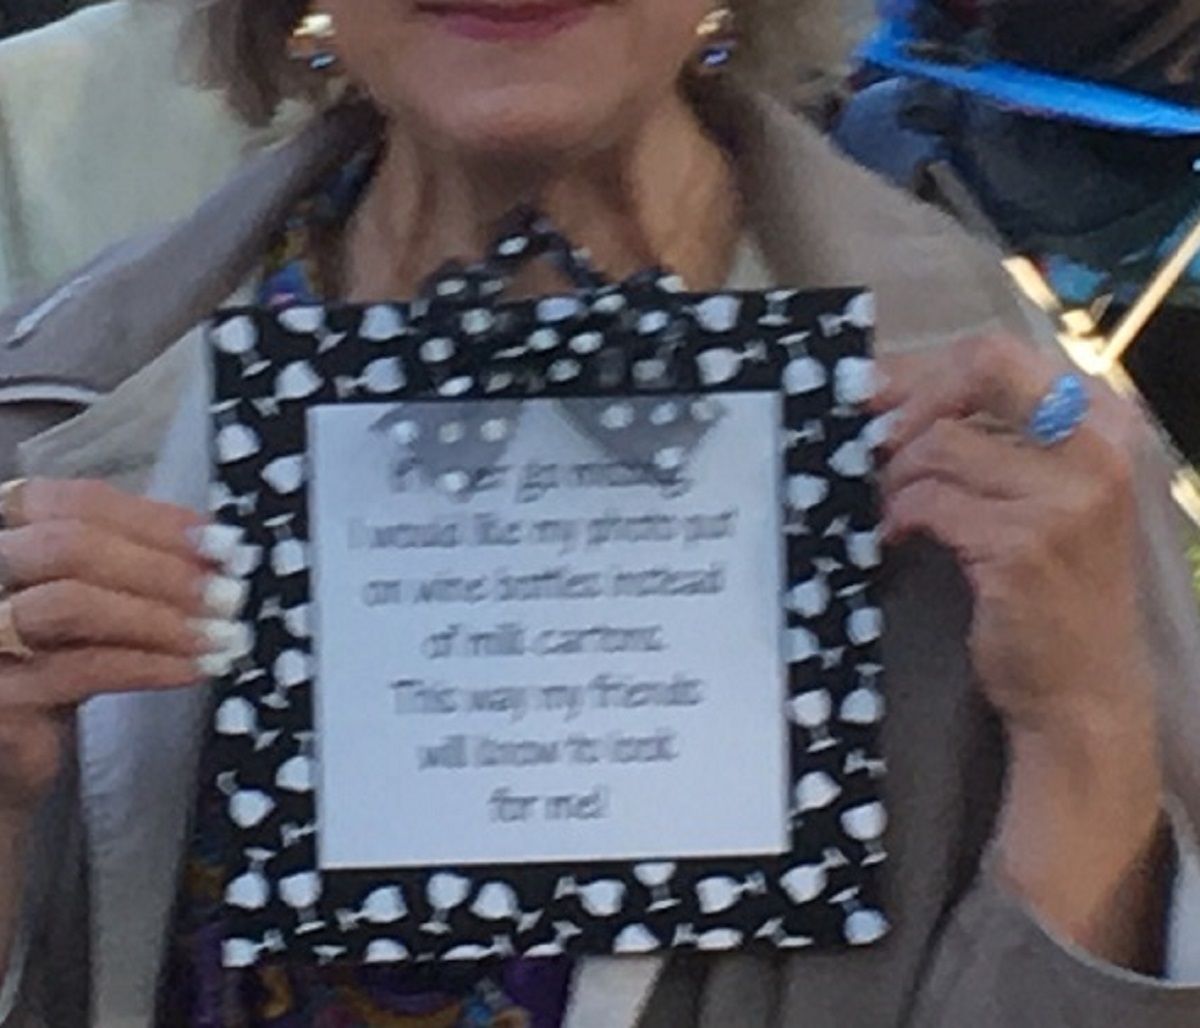 If I ever go missing,
I would like my photo put
on wine bottles instead
of milk cartons.
This way my friends
will know to look
for me!